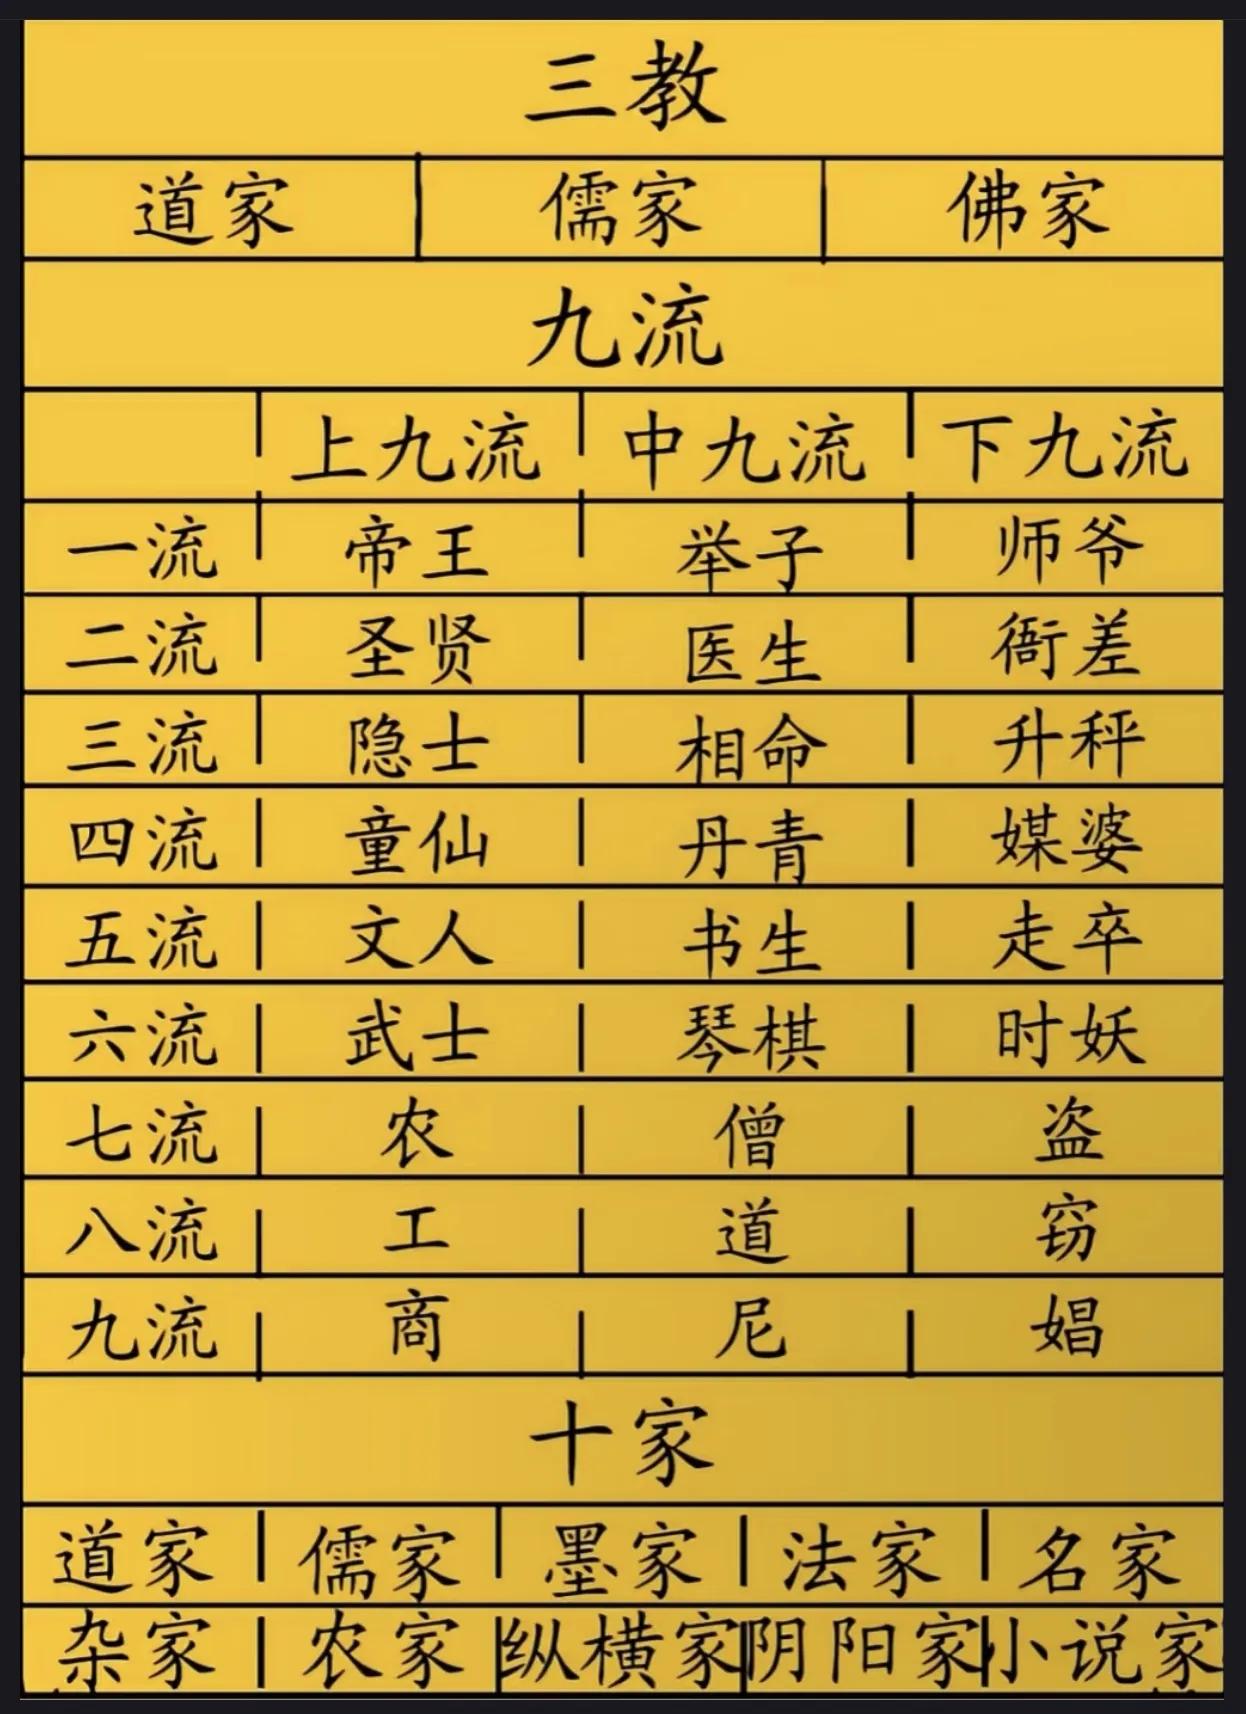 三教
道家 儒家 佛家
九流
上九流 中九流 下九流
一流 帝王 举子 师爷
二流 圣贤 医生 衙差
三流 隐士 相命 升秤
四流 童仙 丹青 媒婆
五流 文人 书生 走卒
六流 武士 琴棋 时妖
七流 农 僧 盗
八流 工 道 窃
九流 商 尼 娼
十家
道家 儒家 墨家 法家 名家
杂家 农家 纵横家 阴阳家 小说家